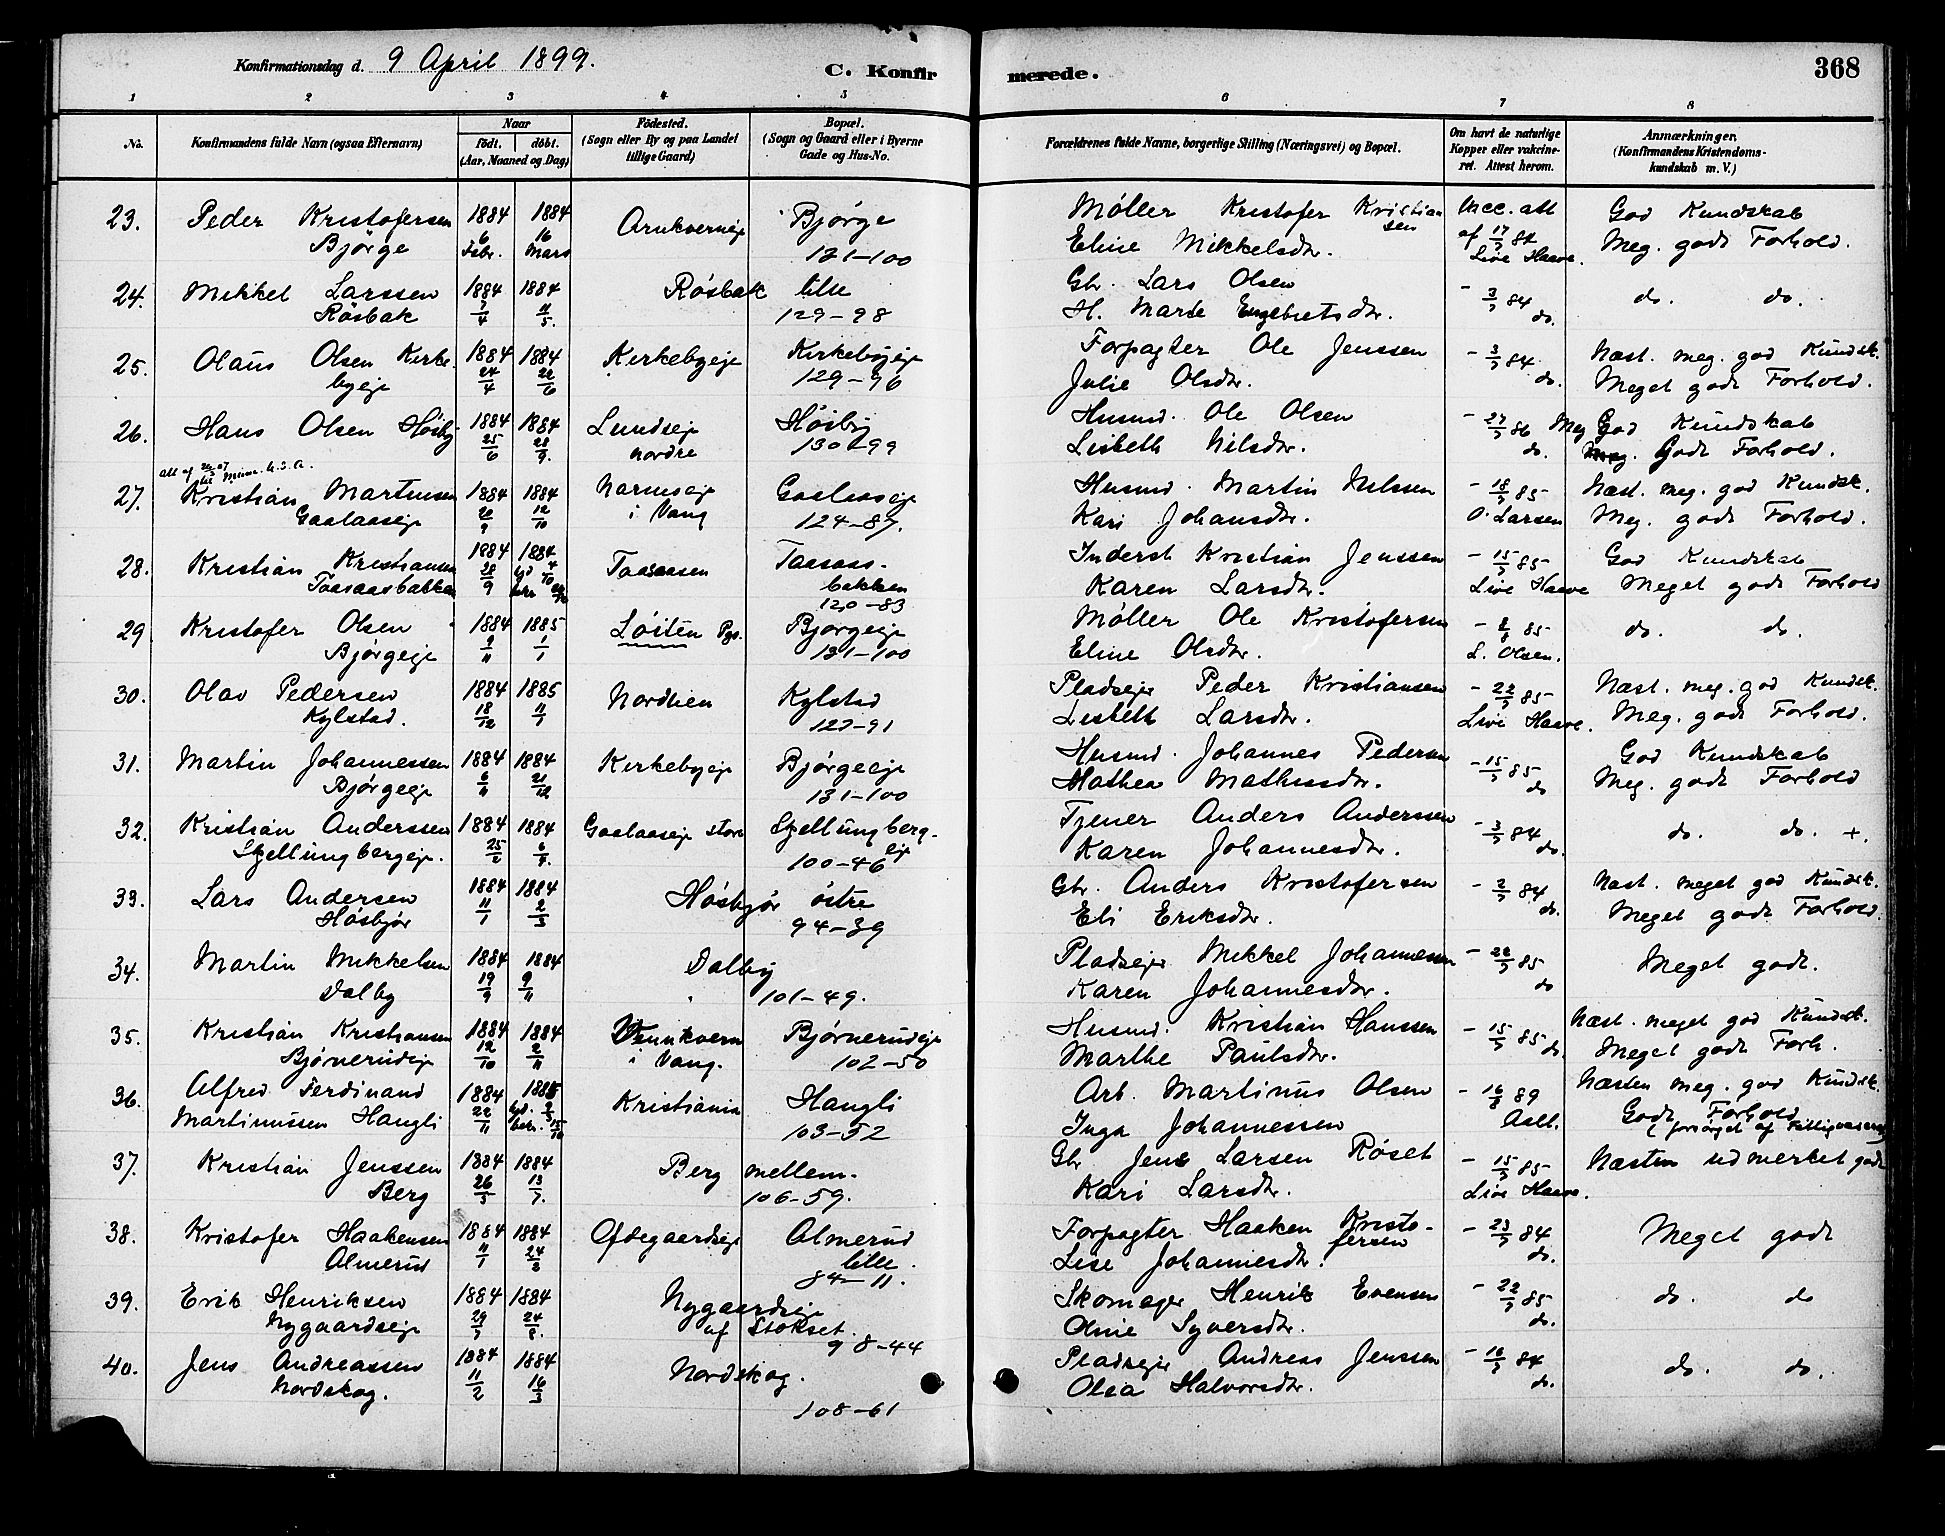 Konfirmationsdag d. 9 April 1899.
C. Konfirmerede.
368
1 2 3 4 5 6 7 8
No.
Konfirmandens fulde Navn (ogsaa Efternavn)
Naar
födt. döbt.
(Aar, Maaned og Dag)
Födested.
(Sogn eller By og paa Landet tillige Gaard)
Bopæl.
(Sogn og Gaard eller i Byerne Gade og Hus-No.
Forældrenes fulde Navne, borgerlige Stilling (Næringsvei) og Bopæl.
Om havt de naturlige Kopper eller vakcineret. Attest herom.
Anmærkninger.
(Konfirmandens Kristendomskundskab m. V.)
23. Peder Kristofersen 1884 1884 Bjørge Møller Kristofer Kristiansen Vacc. att God Kundskab
Bjørge 6 Febr. 16 Mars 131-100 Eline Mikkelsdtr. af 17/7 84 Live Haave. Meg. godt Forhold.
24. Mikkel Larssen 1884 1884 Røsbak lille Gbr. Lars Olsen - 3/7 84 do. do.
Røsbak 7/4 11/5. 129-98 H. Marte Engebretsdtr. do.
25. Olaus Olsen Kirke- 1884 1884 Kirkebyeje Kirkebyeje Forpagter Ole Jenssen - 3/7 84 Næst. meg. god Kundsk.
byeje 24/4 22/6 129-96 Julie Olsdtr. do. Meget godt Forhold.
26. Hans Olsen Høiby 1884 1884 Lundseje Høiby Husmd. Ole Olsen - 27/7 86 Meg God Kundskab
25/6 28/9. nordre 130-99 Lisbeth Nilsdtr. do. Godt Forhold.
27. Kristian Martinsen 1884 1884 i Vang Gaalaaseje Husmd. Martin Nilssen - 18/7 85 Næst. meg. god Kundsk.
Gaalaaseje 20/9 12/10 124-87. Kari Johansdtr. O. Larsen Meg. godt Forhold.
28. Kristian Kristiansen 1884 1884 Taasaasen Taasaas- Inderst Kristian Jenssen - 15/7 85 God Kundskab
Taasaasbakken 28/9 bakken Karen Larsdtr. Live Haave Meget godt Forhold
120-83
29 Kristofer Olsen 1884 1885 Løiten Pgs. Bjørgeije Møller Ole Kristofersen - 85 do. do.
Bjørgeije 9/11 1/1 131-100 Eline Olsdtr. L. Olsen.
30. Olav Pedersen 1884 1885 Nordlien Kylstad Pladsejer Peder Kristiansen - 22/7 85 Næst. meg. god Kundsk.
Kylstad. 18/12 11/1 127-91 Lisbeth Larsdtr. Live Haave. Meg. godt Forhold.
31. Martin Johannessen 1884 1884 Kirkebyeje Bjørgeeje Husmd. Johannes Pedersen - 15/7 85 God Kundskab
Bjørgeije 6/11 21/12 131-100 Mathea Mathisdtr. do Meg. godt Forhold
32. Kristian Anderssen 1884 1884 Gaalaaseje store Skjellungberg- Tjener Anders Anderssen - 3/7 84 do. do. +
Skjellungbergeje. 25/2 100-46 eje Karen Johannesdtr. do.
33. Lars Andersen 1884 1884 Høsbjør østre Gbr. Anders Kristofersen - 2/7 84 Næst. meget god Kundsk.
Høsbjør 11/1 2/3 94-39 Eli Eriksdtr. do. Meget godt Forhold.
34. Martin Mikkelsen 1884 1884 Dalby Pladsejer Mikkel Johannessen - 22/7 85 Meget godt.
Dalby 19/9 9/11 101-49. Karen Johannesdtr. do
35. Kristian Kristiansen 1884 1884 Vennkvern Bjørnerudeje Husmd. Kristian Hanssen - 15/7 85 Næst. meget god Kundsk.
Bjørnerudeje 12/10 2/11 i Vang. 102-50 Marthe Paulsdtr. do. Meget godt Forh.
36. Alfred Ferdinand 1884 1885 Kristiania Haugli Arb. Martinus Olsen - 16/8 89 Næsten meg. god Kundsk.
Martinussen Haugli 22/11 103-52 Inga Johannessen Godt Forhold
(forsørget af Fattigvæsenet)
37. Kristian Jenssen 1884 1884 Berg mellem. Gbr Jens Larsen Røset - 15/7 85 Næsten udmerket godt
Berg 26/5 13/7. 106-59. Kari Larsdtr. Live Haave.
38. Kristofer Haakensen 1884 1884 Oftegaardseje Almerud Forpagter Haaken Kristofersen - 23/7 84 Meget godt
Almerud 11/1 24/2 lille. Lise Johannesdtr. do.
84-11.
39. Erik Henriksen 1884 1884 Nygaardseje Skomager Henrik Evensen - 22/7 85 do. do
Nygaardseje 29/7 24/8. af Stokset. Oline Syversdtr. do.
98-44
40. Jens Andreassen 1884 1884 Nordskog. Pladsejer Andreas Jenssen - 16/7 84 do. do.
Nordskog. 11/2 16/3 108-61 Olea Halvorsdtr. do.